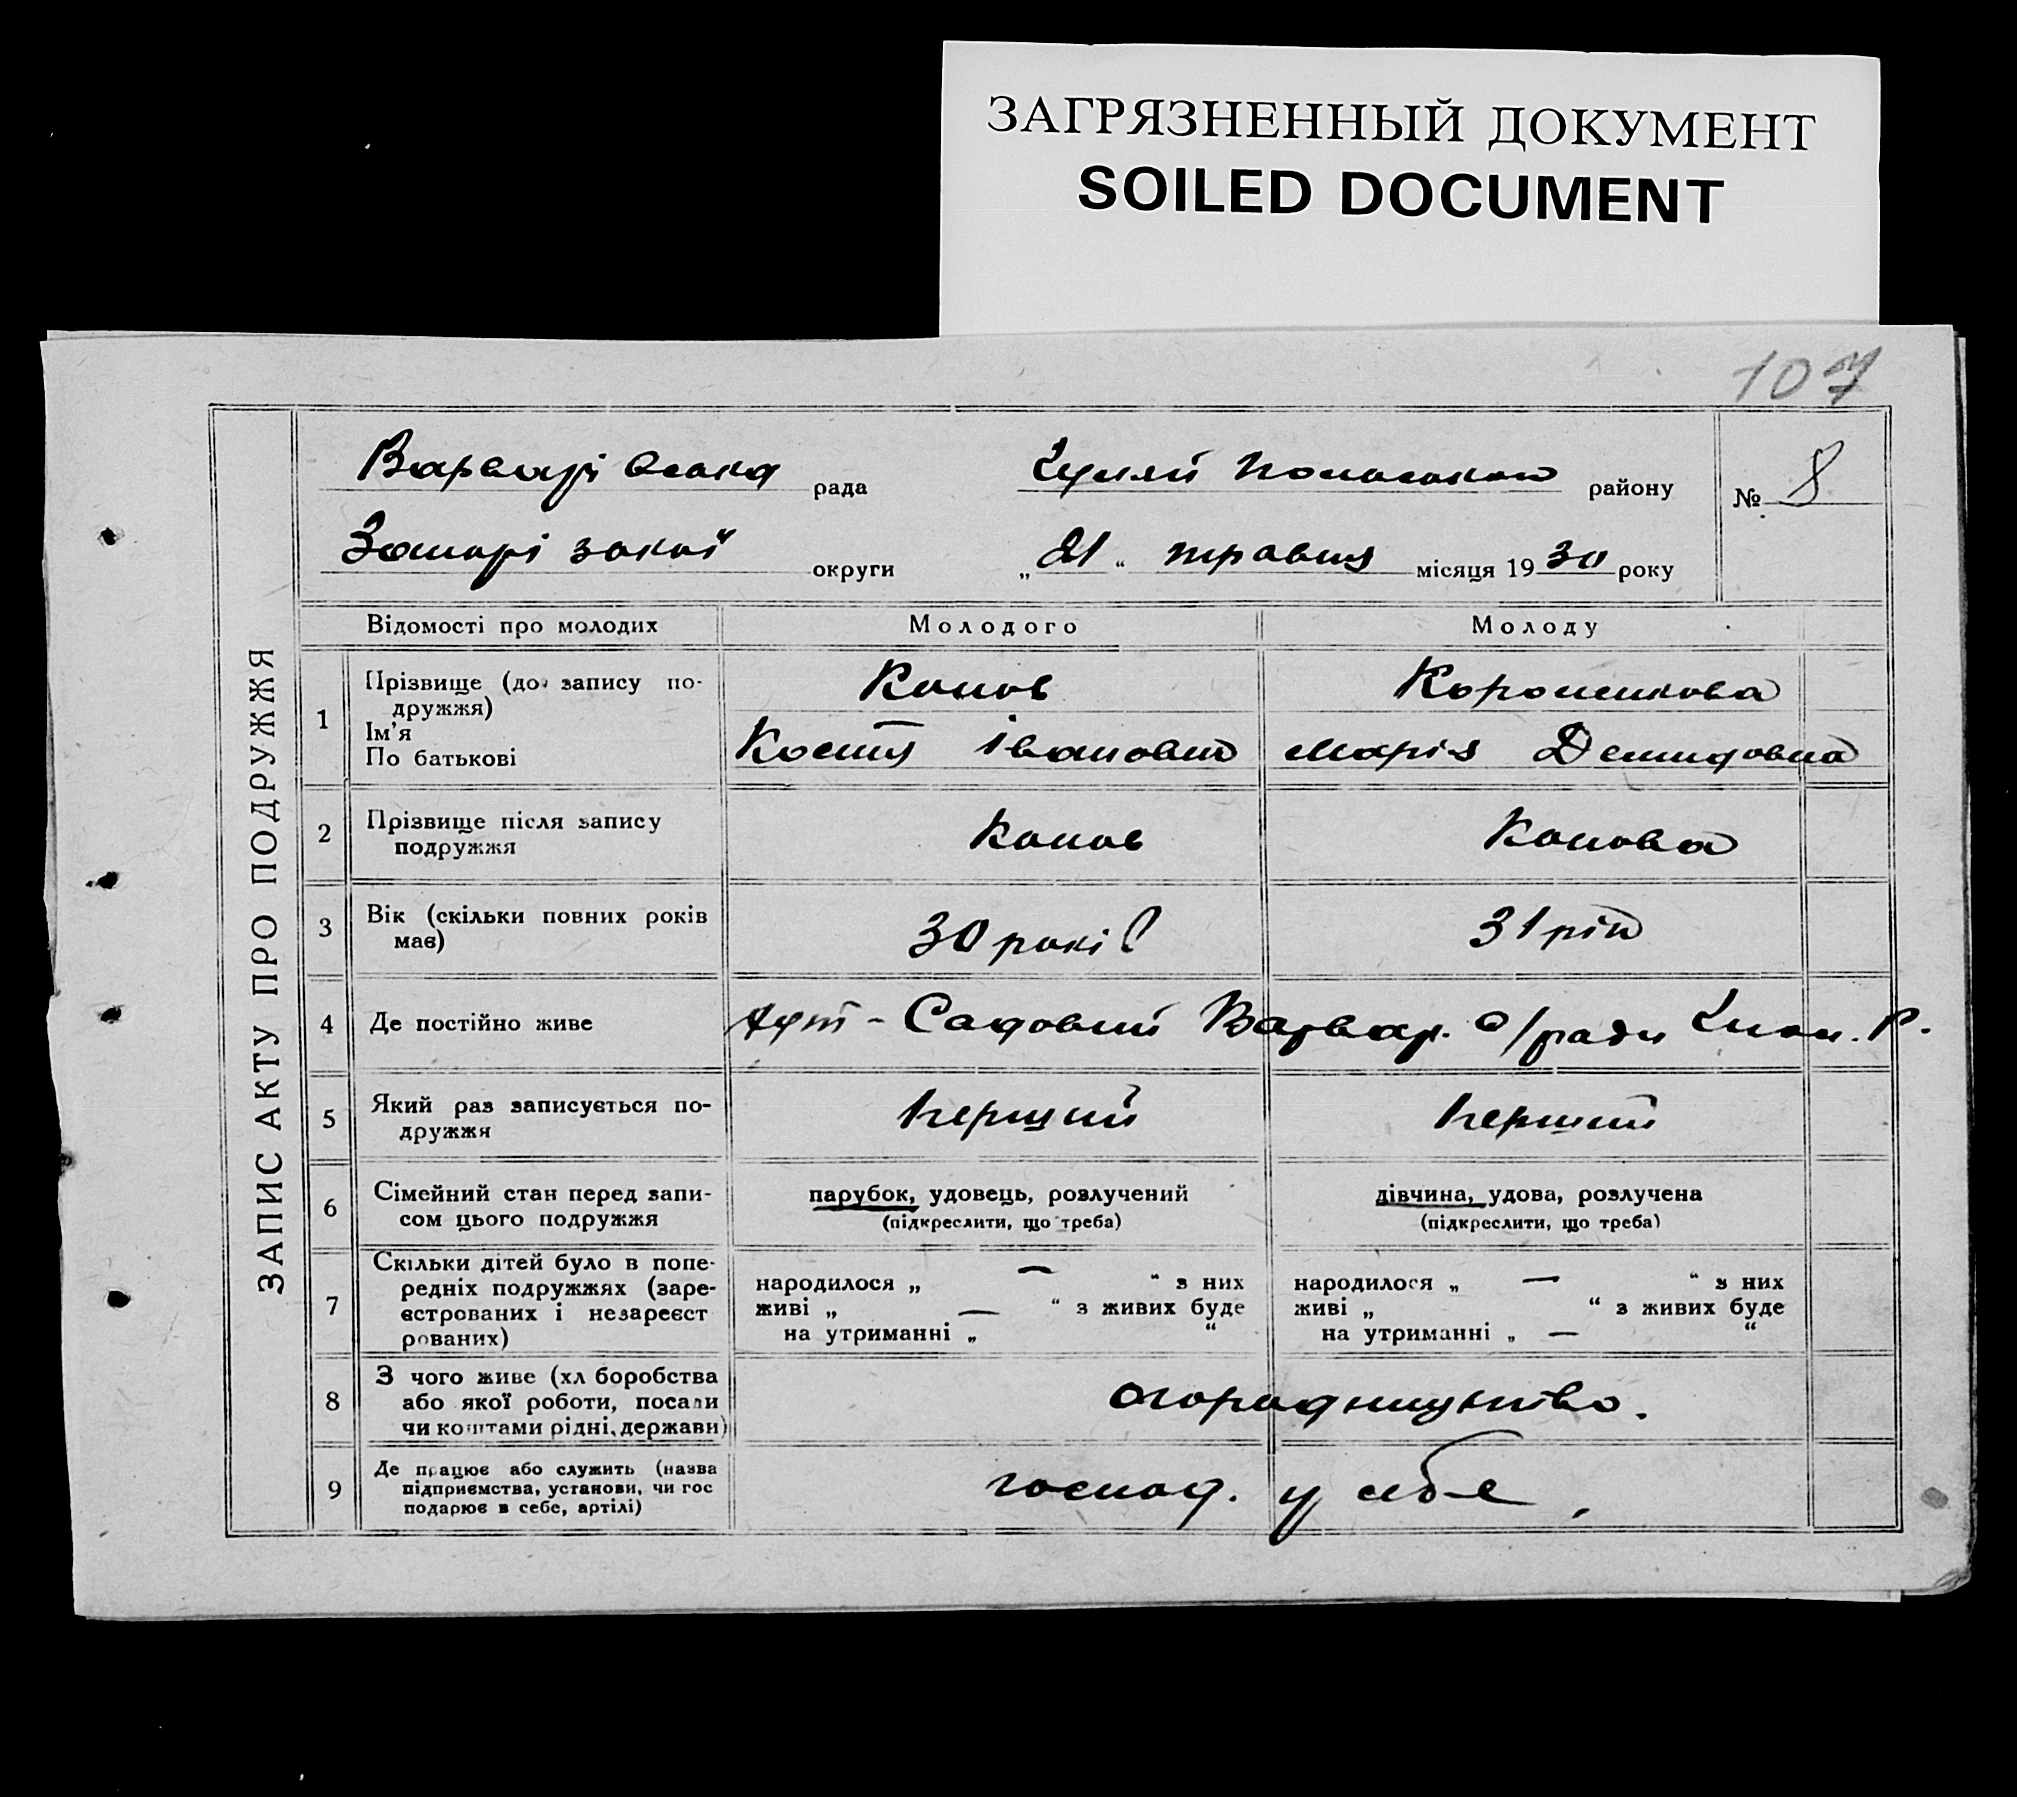 ЗАГРЯЗНЕННЫЙ ДОКУМЕНТ
SOILED DOCUMENT
107
ЗАПИС АКТУ ПРО ПОДРУЖЖЯ
Варварівська рада района № 8
округи „21“ травня місяця 1930 року
Відомості про молодих Молодого Молоду
1 Прізвище (до запису по-
дружжя)
Ім'я
По батькові
Конов
Костя Іванович
Марія Демидовна
2 Прізвище після запису
подружжя
Конов Конова
3 Вік (скільки повних років
має)
30 років 31 рік
4 Де постійно живе
Хут - Садовий Варвар. с/ради Р.
5 Який раз записується по-
дружжя
Перший Перший
6 Сімейний стан перед запи-
сом цього подружжя
парубок, удовець, розлучений
(підкреслити, що треба)
дівчина, удова, розлучена
(підкреслити, що треба)
7 Скільки дітей було в попе-
редніх подружжях (заре-
єстрованих і незареєст
рованих)
народилося „ — “ з них
живі „ — “ з живих буде
на утриманні „ “
народилося „ — “ з них
живі „ “ з живих буде
на утриманні „ — “
8 З чого живе (хл боробства
або якої роботи, посади
чи коштами рідні, держави)
огородництво.
9 Де працює або служить (назва
підприємства, установи, чи гос
подарює в себе, артілі)
господ. у себе,